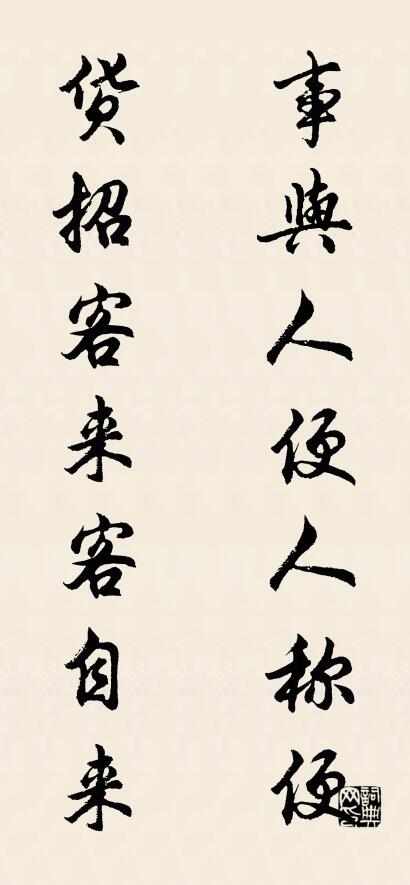 事與人便人称便
货招客来客自来
詞典網